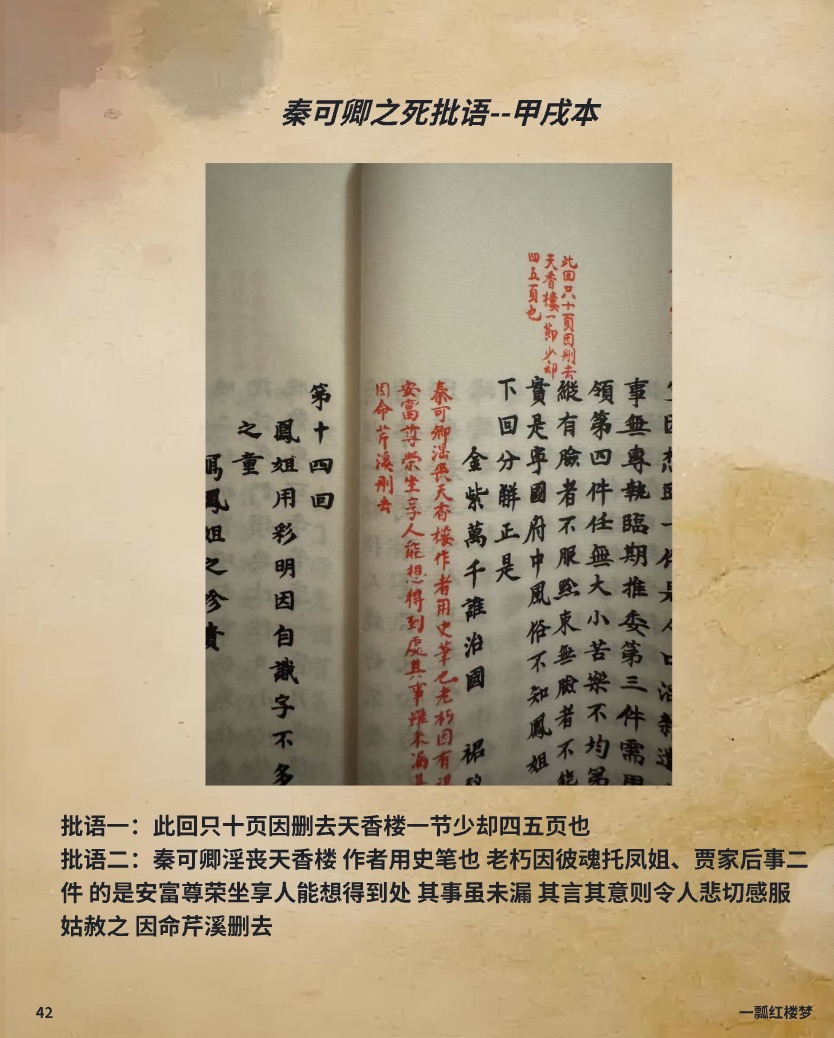 秦可卿之死批语--甲戌本
此回只十頁因刪去
天香樓一節少却
四五頁也
事無專執臨期推委第三件需用
領第四件任無大小苦樂不均第
縱有臉者不服黔束無臉者不能
實是寧國府中風俗不知鳳姐
下回分觧正是
金紫萬千誰治國 裙
秦可卿滛喪天香樓作者用史筆也老朽因有
安富尊榮坐享人能想得到處其事雖未漏其
因命芹溪刪去
第十四回
鳳姐用彩明因自識字不多
之童
寫鳳姐之珍貴
批语一：此回只十页因删去天香楼一节少却四五页也
批语二：秦可卿淫丧天香楼 作者用史笔也 老朽因彼魂托凤姐、贾家后事二
件 的是安富尊荣坐享人能想得到处 其事虽未漏 其言其意则令人悲切感服
姑赦之 因命芹溪删去
42
一瓢红楼梦